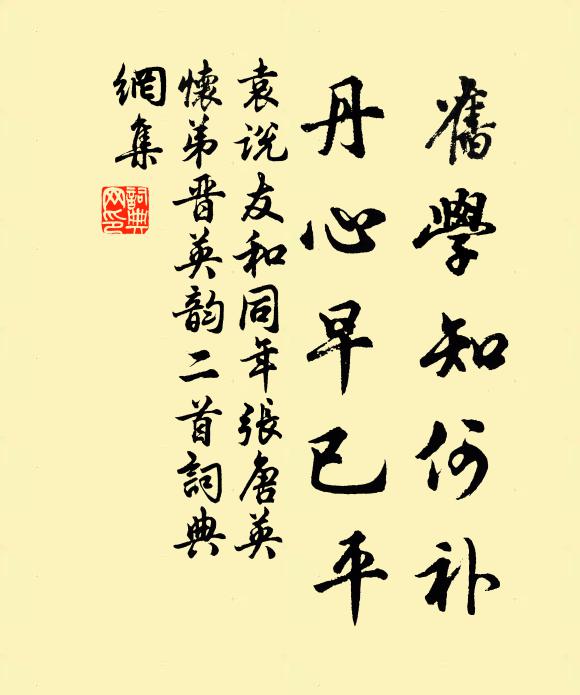 舊學知何补
丹心早已平
袁说友和同年張唐英
懷弟晋英韵二首詞典
網集
詞典
网印